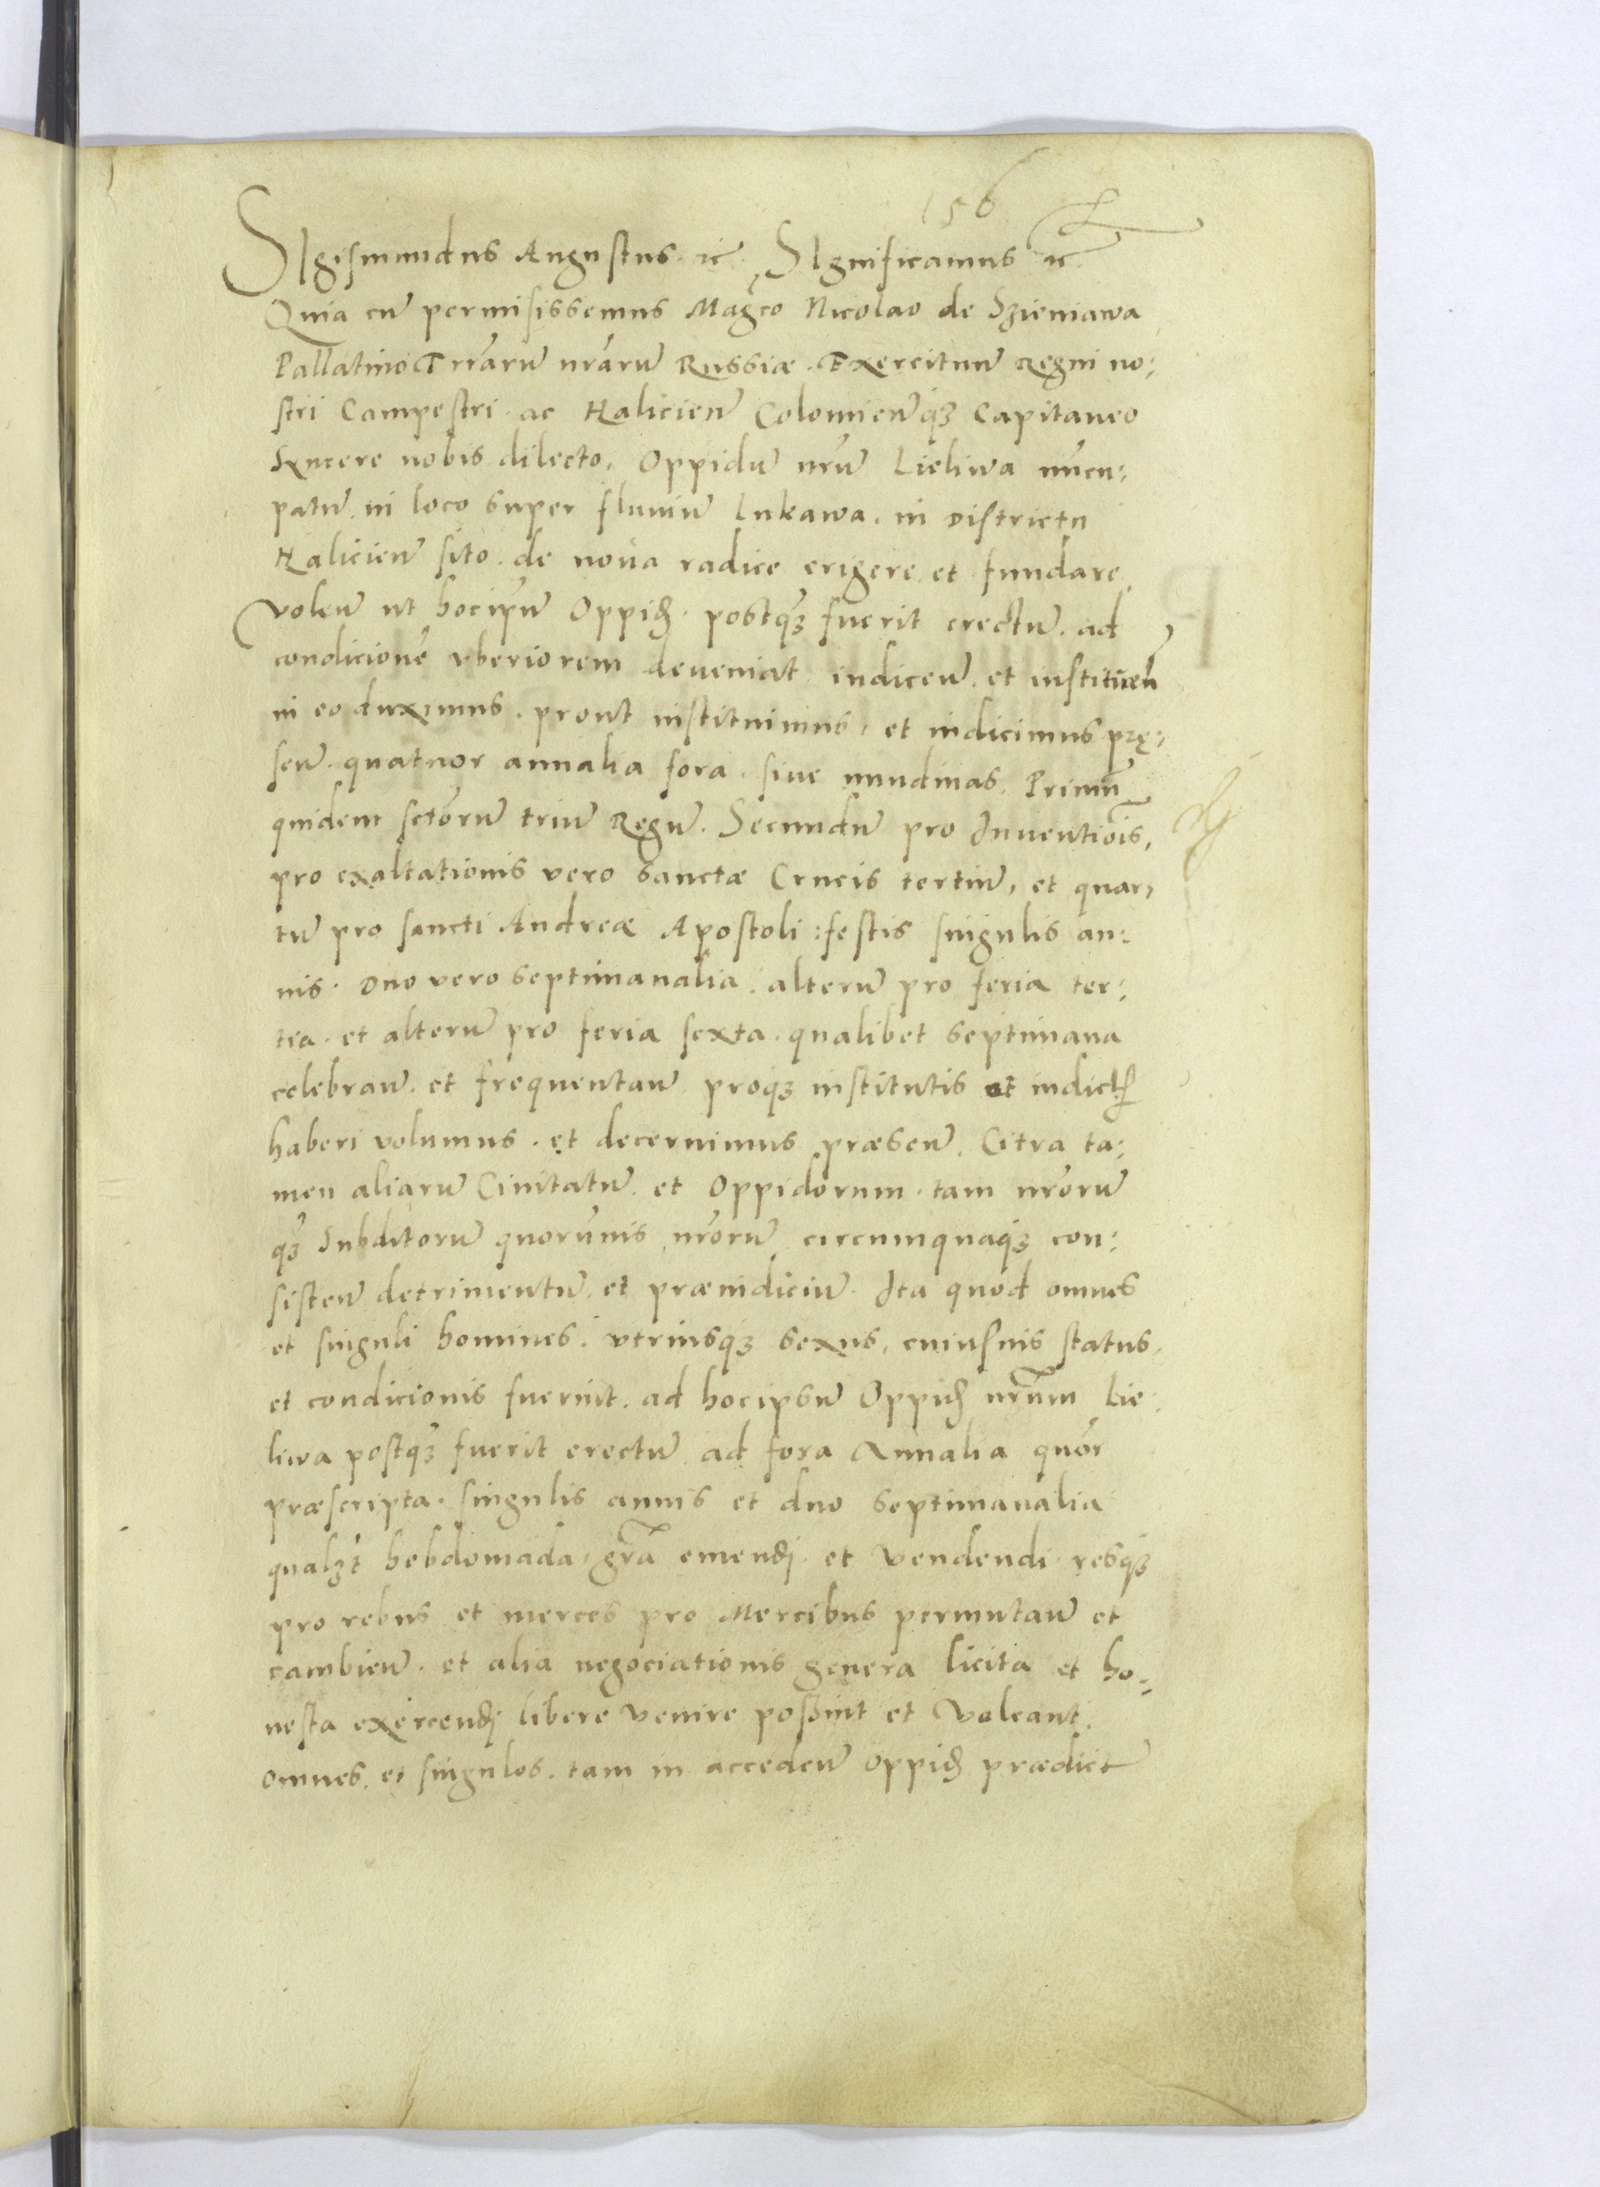 156
SIgismundus Augustus ꝛc SIgnificamus ꝛc
Quia cū permisissemus Magco Nicolao de Szieniawa
Pallatino Trrarū nrarū Russiæ. Exercituū Regni no:
stri Campestri. ac Halicieñ Colomieñqꝫ Capitaneo
Syncere nobis dilecto, Oppidū nrū Lieliwa nūcu:
patū in loco super fluviū Lukawa, in districtu
Halicieñ sito. de nova radice erigere et fundare
Voleñ ut hocipsū Oppid. postqꝫ fuerit erectū. ad
condicionē uberiorem deveniat indiceñ. et instituen
in eo duximus. prout instituimus, et indicimus pręː
señ. quatuor annalia fora. sive nundinas. Primū
quidem sctorū triū Regū. Secundū pro Inventiois,
pro exaltationis vero Sanctæ Crucis tertiū, et quar,
tū pro sancti Andreæ Apostoli: festis singulis an:
nis. Duo vero septimanalia. alterū pro feria ter:
tia. et alterū pro feria sexta. qualibet septimana
celebrañ. et frequentañ proqꝫ institutis et indictꝭ
haberi volumus. et decernimus præseñ. Citra ta:
men aliarū Civitatū. et Oppidorum. tam nrorū
qꝫ Subditorū quorūvis nrorū circumquaqꝫ con:
sisteñ detrimentū. et præiudiciū. Ita quod omnes
et singuli homines. utriusqꝫ sexus, cuiusvis status.
et condicionis fuerint. ad hocipsū Oppid nrum Lie:
liwa postqꝫ fuerit erectū ad fora Annalia quor
præscripta. singulis annis et duo septimanalia
qualꝫt hebdomada, gra emendi. et vendendi. resqꝫ
pro rebus et merces pro Mercibus permutañ et
cambieñ. et alia negociationis genera licita et ho:
nesta exercendi libere venire possint et valeant.
Omnes et singulos. tam in accedeñ Oppid prædict